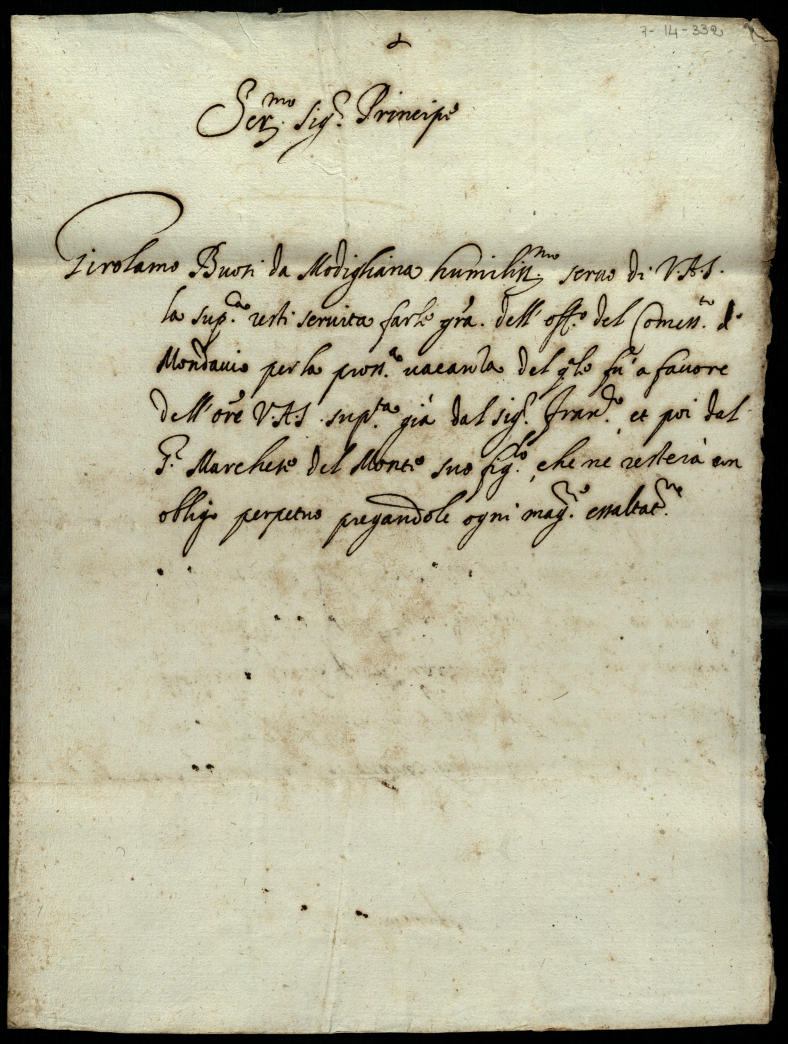 7-14-332
Ser.mo Sig.r Principe
Girolamo Buosi da Modigliana humiliss.mo seruo di V.A.S.
la sup.ca resti seruita farle gra. dell' off.o del Comess.to di
Mondauio per la pross.a uacanza del fu a fauore
dell' V.A.S. sup.ta già dal sig.r Fran.co et poi dal
S.r Marchese del Monte suo fig.lo, che ne resterà con
obligo perpetuo pregandole ogni mag.re essaltat.ne